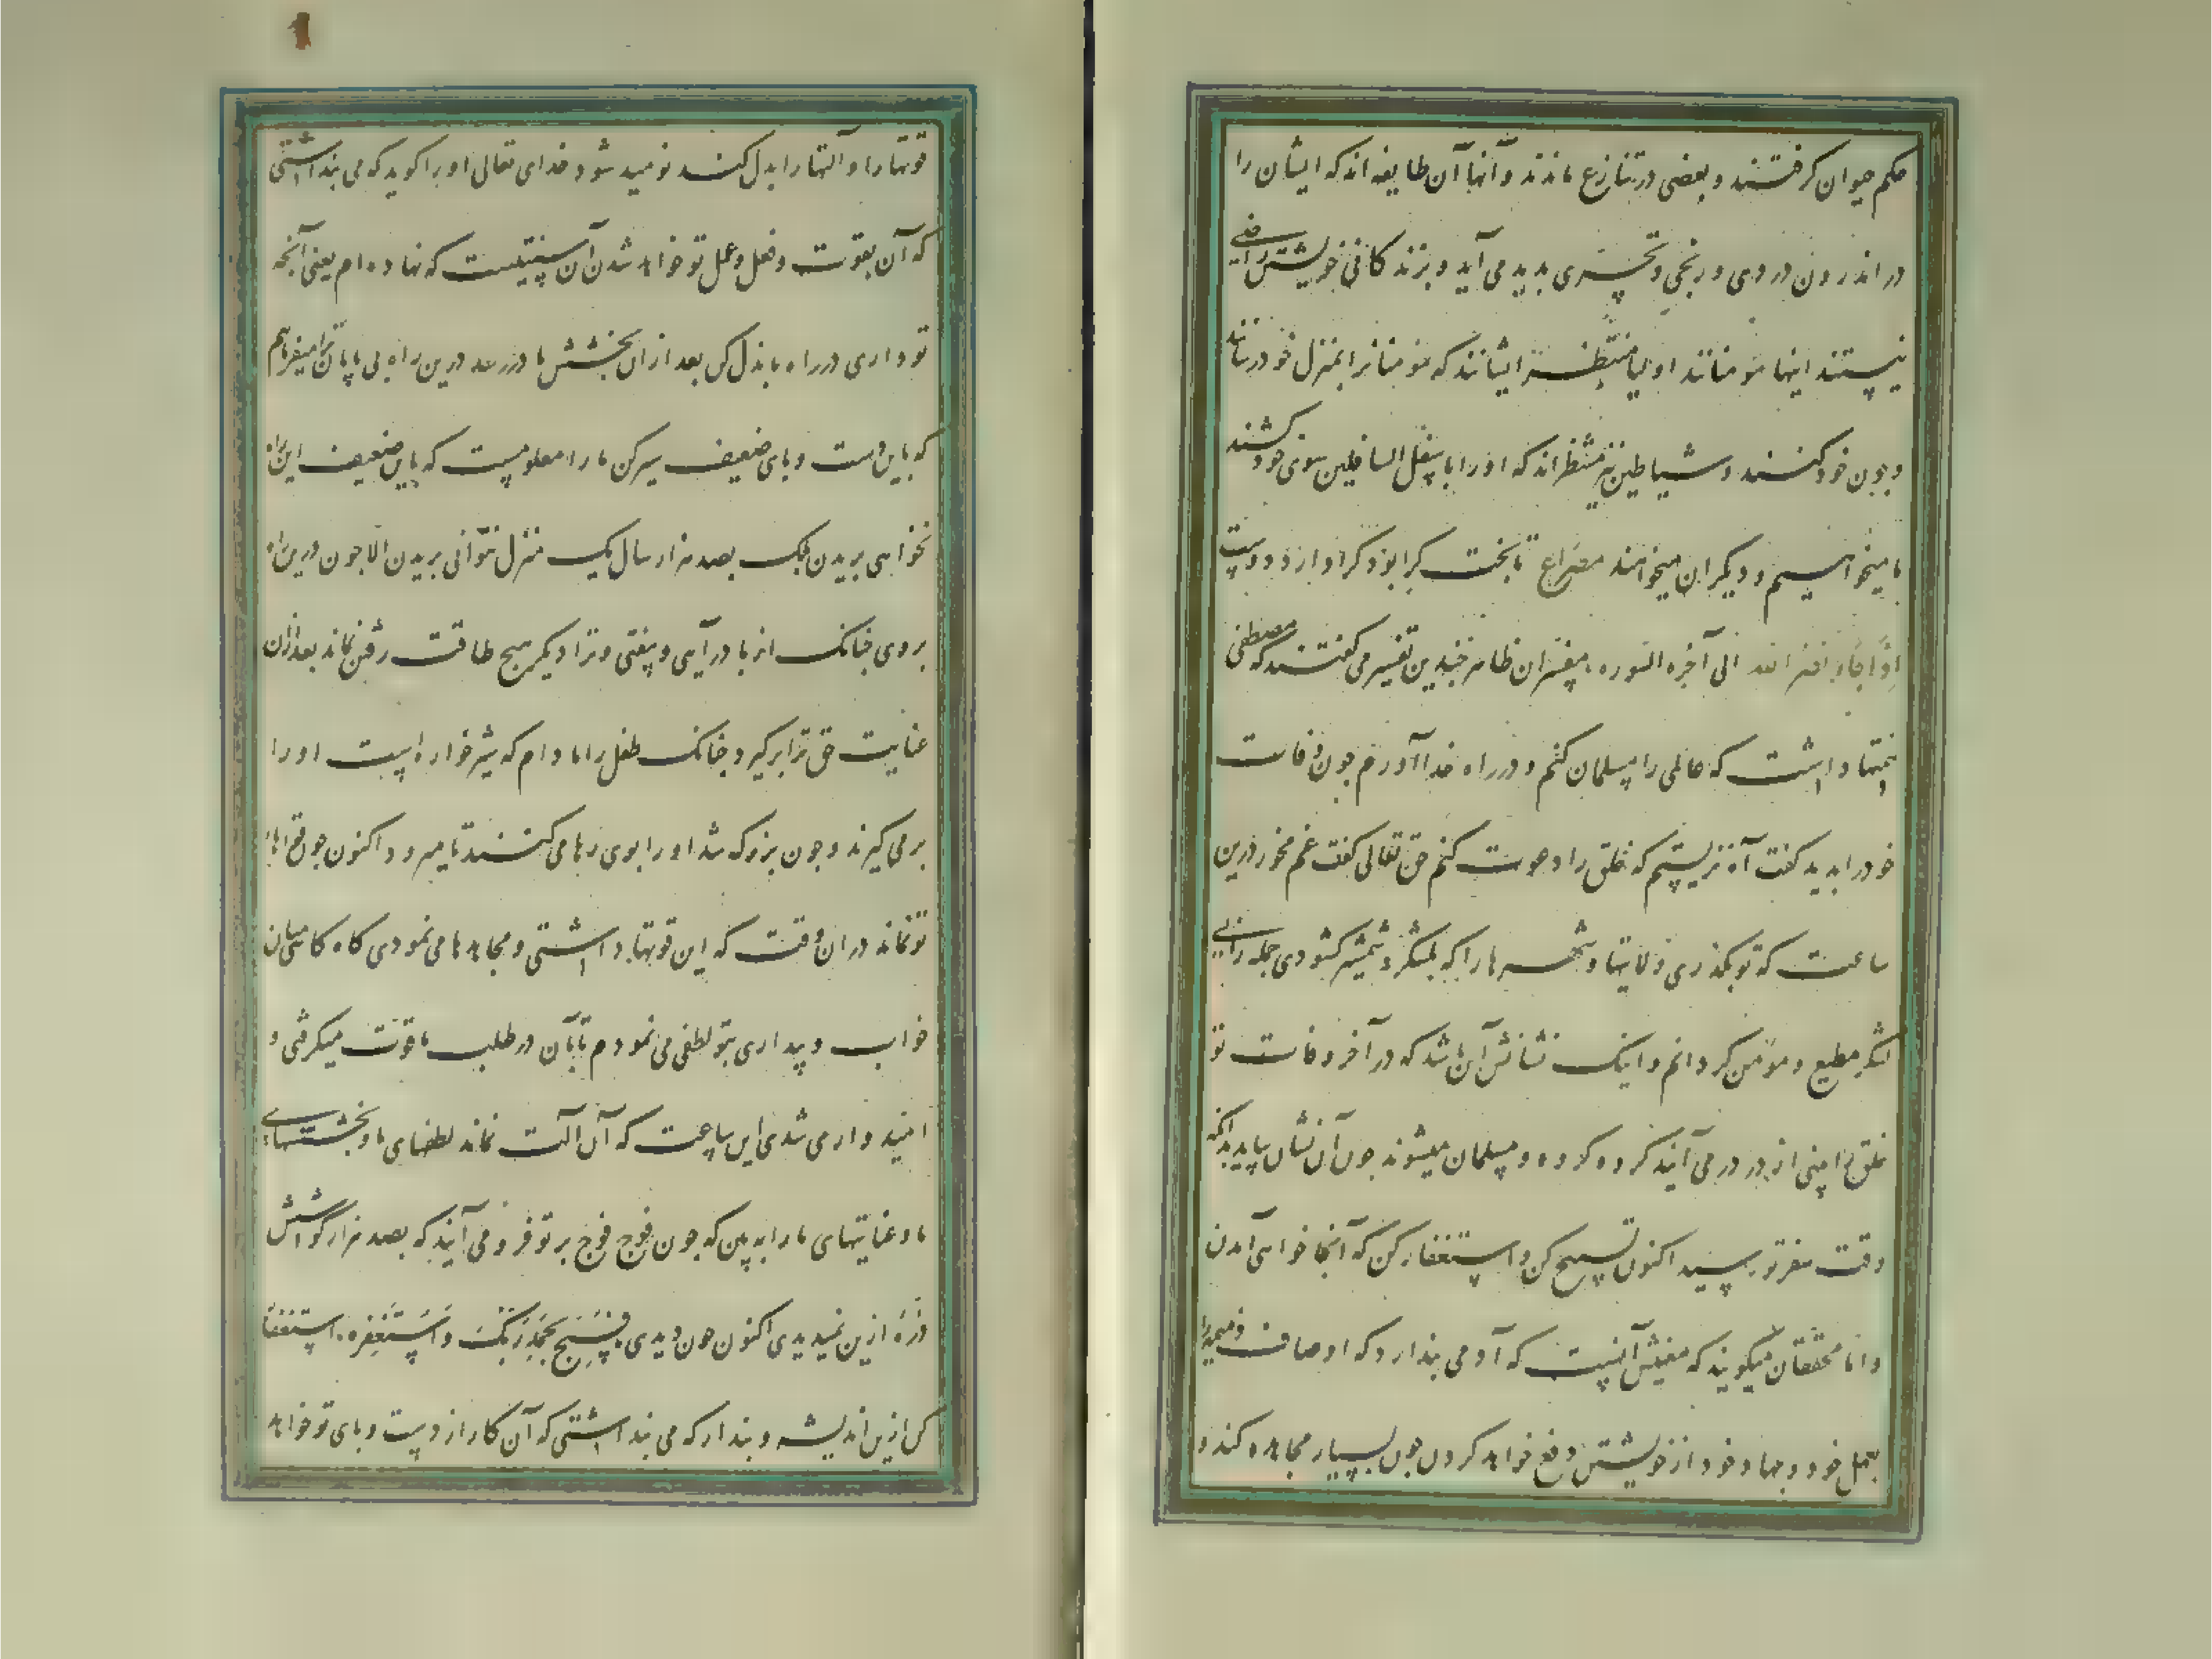 حکم حیوان کرفتند و بعضی در تنازع ماندند و آنها آن طایفه اند که ایشان را
در اندرون دردی و رنجی و تحسّری بدید می آید و بزند کانی خویشتن راضی
نیستند اینها مؤمنانند اولیا منتظر ایشانند که مؤمنانرا بمنزل خود رسانند
و چون خود کنند و شیاطین نیز منتظراند که او را باسفل السافلین سوی خود کشند
ما میخواهیم و دیگران میخواهند مصراع تا بخت کرا بود کرا دارد دوست
اِذَا جَاءَ نصر الله الی آخره السوره مفسّران ظاهر چنین تفسیر می کفتند که مصطفی
همّتها داشت که عالمی را مسلمان کنم و در راه خدا آورم چون وفات
خود را بدید کفت آه نزیستم که خلق را دعوت کنم حق تعالی کفت غم مخور درین
ساعت که تو بکذری ولایتها و شهرها را که بلشکر و شمشیر کشودی جمله را بی
لشکر مطیع و مؤمن کردانم و اینک نشانش آن باشد که در آخر وفات تو
خلق را بینی از در در می آیند کروه کروه و مسلمان میشوند چون آن نشان بیاید بدانکه
وقت سفر تو رسید اکنون تسبیح کن و استغفار کن که آنجا خواهی آمدن
و اما محققان میکویند که معنیش آنست که آدمی بندارد که اوصاف ذمیمه را
بعمل خود و جهاد خود از خویشتن دفع خواهد کردن چون بسیار مجاهده کند و
قوتها را و آلتها را بدل کند نومید شود خدای تعالی او را کوید که می بنداشتی
که آن بقوت و فعل و عمل تو خواهد شدن آن سنتیست که نهاده ام یعنی آنچه
تو داری در راه ما بذل کن بعد از آن بخشش ما در رسد درین راه بی پایان ترا میفرماییم
که باین دست و بای ضعیف سیر کن ما را معلومست که باین ضعیف این راه
نخواهی بریدن بلک بصد هزار سال یک منزل نتوانی بریدن الا چون درین راه
بروی چنانک از با در آیی و بیفتی و ترا دیکر هیچ طاقت رفتن نماند بعد از آن
عنایت حق ترا بر کیرد چنانک طفل را مادام که شیر خواره است او را
بر می کیرند و چون بزرک شد او را بوی رها می کنند تا میرود اکنون چون قوتهاء
تو نماند در آن وقت که این قوتها داشتی و مجاهدها می نمودی کاه کاهی میان
خواب و بیداری بتو لطفی می نمودم تا بآن در طلب ما قوت میکرفتی و
امیدوار می شدی این ساعت که آن آلت نماند لطفهای ما و بخششهای
ما و عنایتهای ما را ببین که چون فوج فوج بر تو فرو می آیند که بصد هزار کوشش
ذرّهٔ ازین نمیدیدی اکنون چون دیدی فَسَبِّح بِحَمْدِ رَبِّکَ وَاسْتَغْفِره استغفار
کن ازین اندیشه و بندار که می بنداشتی که آن کار از دست و بای تو خواهد